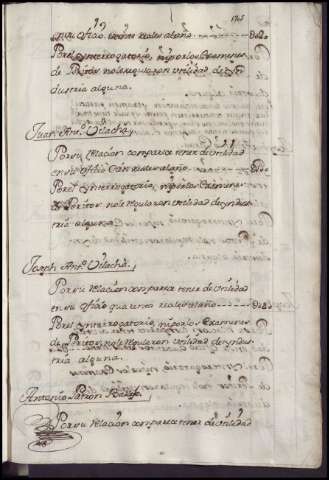 en su ofizio
Por el ynterrogatorio, ni por los Examenes
de Peritos no le regularon Utilidad de yn
dustria alguna.
Juan Antº Vilacha
Por su relacion comparece tener de Utilidad
en su ofizio reales al año
Por el ynterrogatorio, ni por los Examenes
de Peritos no le regularon Utilidad de yndus
tria alguna.
Joseph Antº Vilacha
Por su relacion comparece tener de Utilidad
en su ofizio quarenta reales al año
Por el ynterrogatorio, ni por los Examenes
de Peritos no le regularon Utilidad de yndus
tria alguna.
Antonio Patron
Por su relacion comparece tener de Utilidad